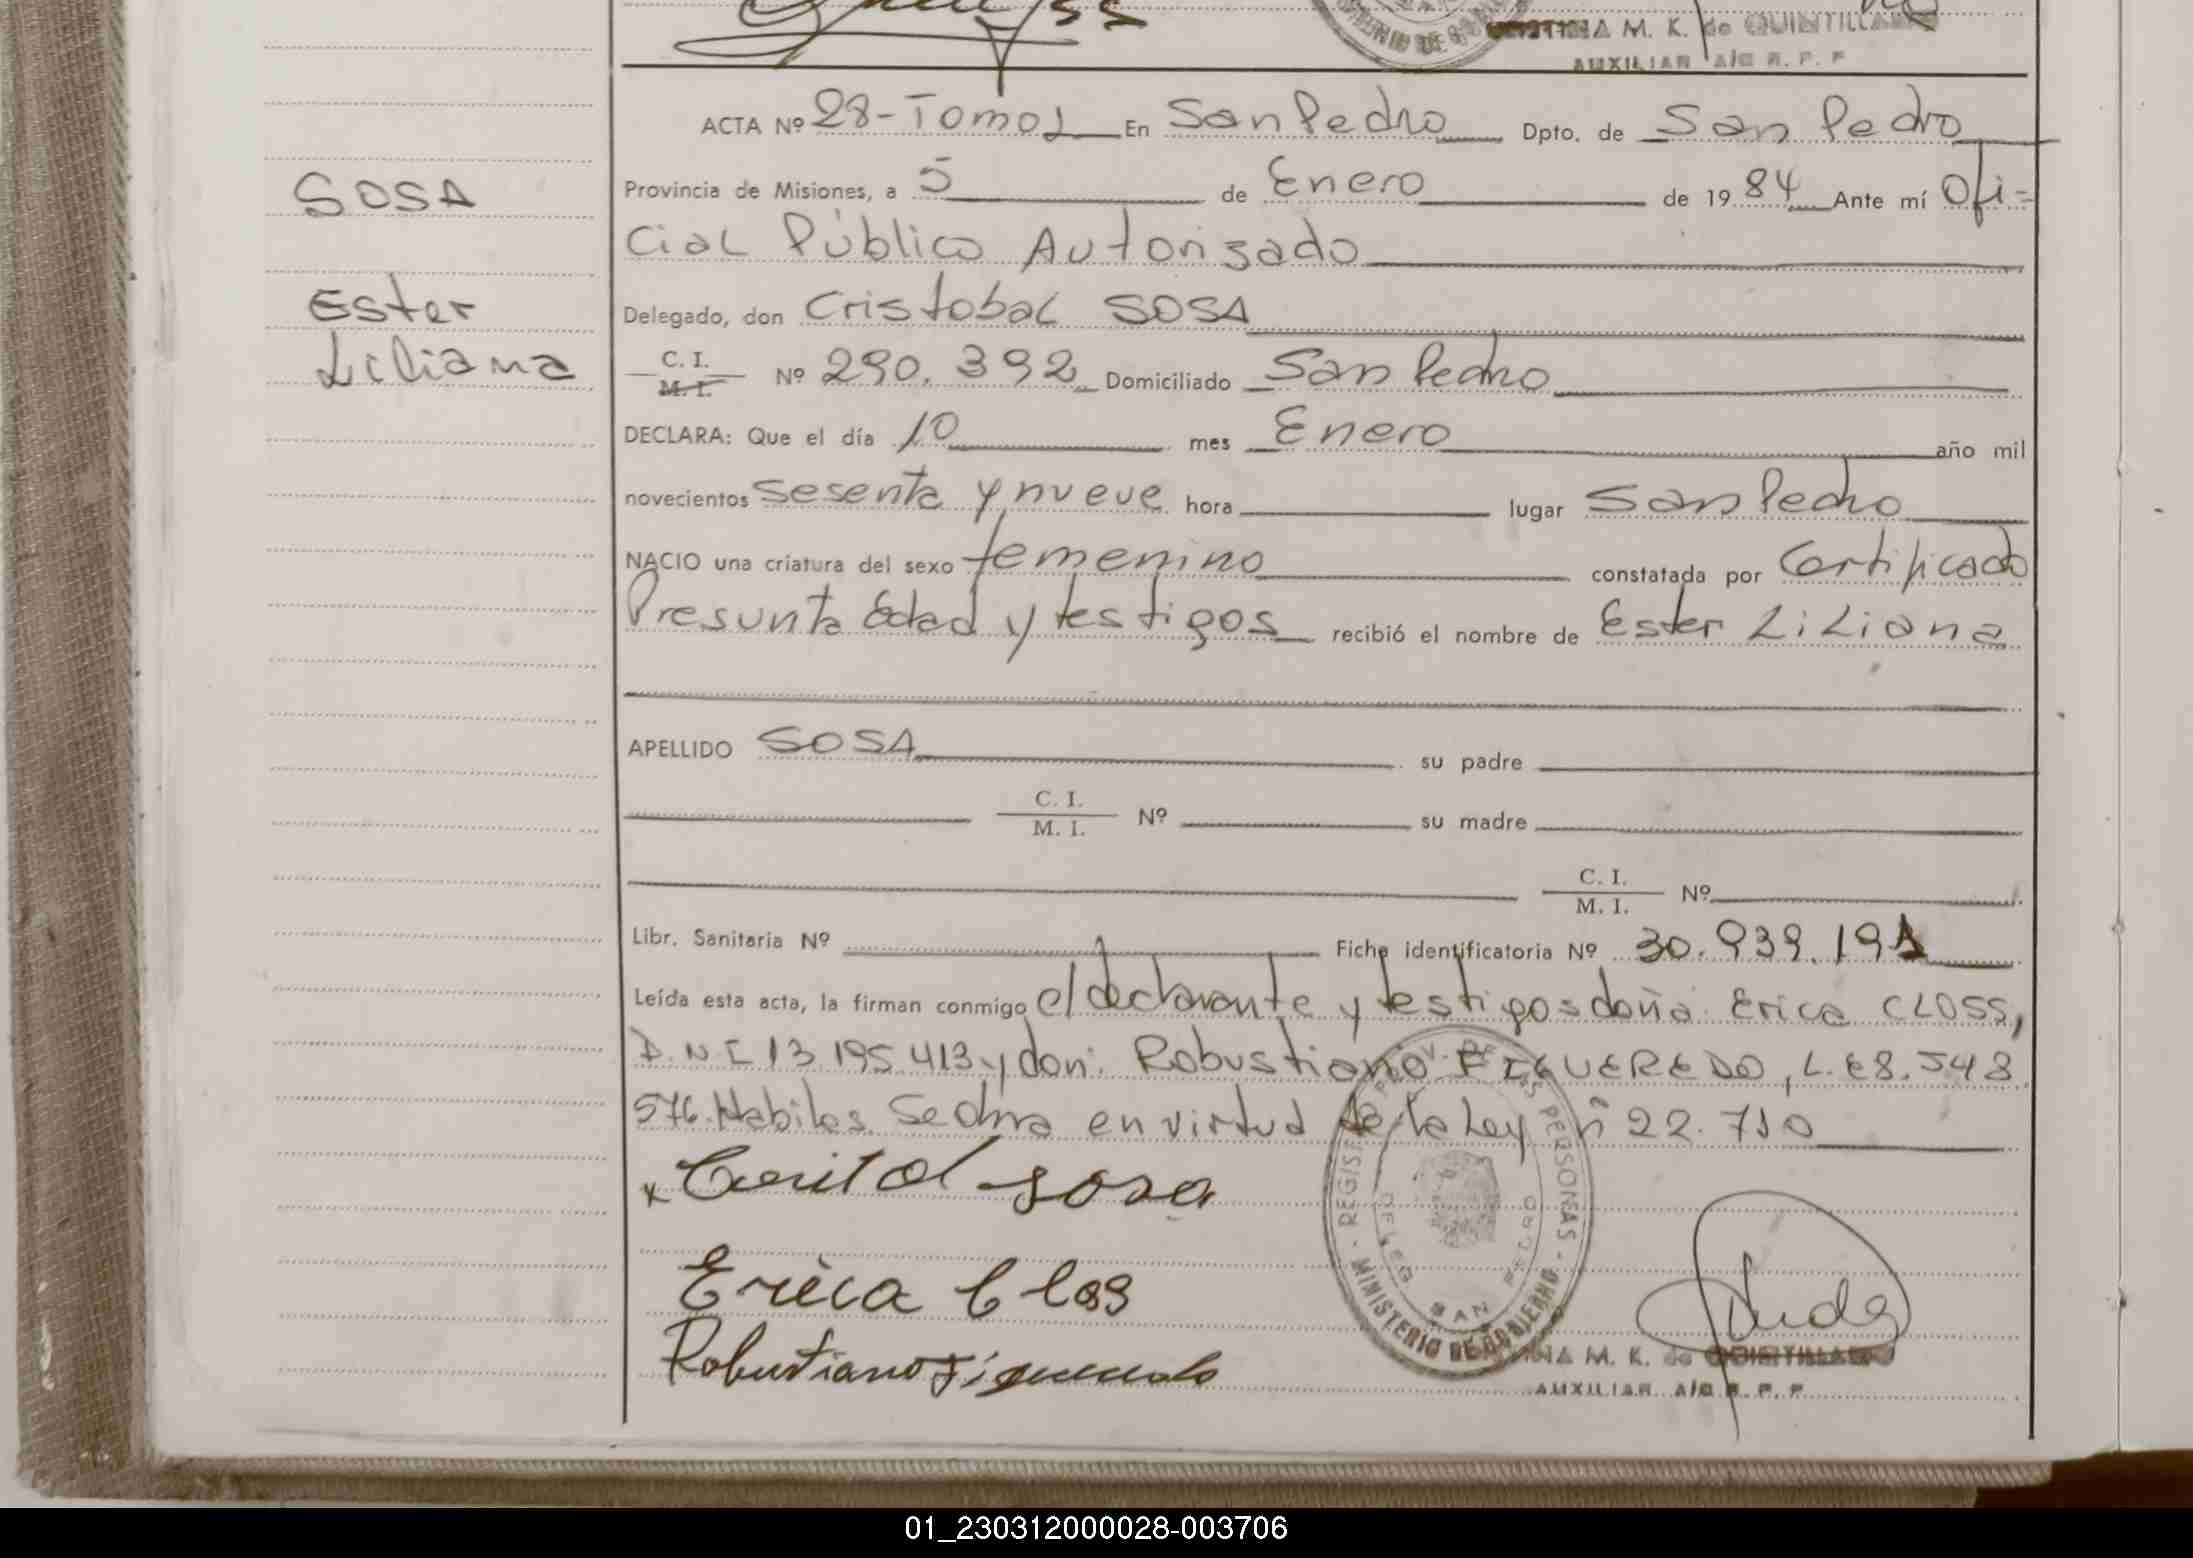 CRISTINA M. K. de QUINTILLAN
AUXILIAR A/C R. P. P
ACTA Nº 28-Tomo 1 En San Pedro Dpto. de San Pedro
SOSA
Provincia de Misiones, a 5 de Enero de 1984 Ante mí Ofi=
cial Público Autorizado
Ester
Delegado, don Cristobal SOSA
Liliana
C. I. M. I. Nº 290.392 Domiciliado San Pedro
DECLARA: Que el día 10 mes Enero año mil
novecientos sesenta y nueve hora lugar San Pedro
NACIO una criatura del sexo femenino constatada por Certificado
Presunta Edad y testigos recibió el nombre de Ester Liliana
APELLIDO SOSA su padre
C. I. M. I. Nº su madre
C. I. M. I. Nº
Libr. Sanitaria Nº Ficha identificatoria Nº 30.939.191
Leída esta acta, la firman conmigo el declarante y testigos doña: Erica CLOSS,
D.N.I 13.195.413 y don: Robustiano FIGUEREDO, L.E 8.548
576. Habiles. Se dma en virtud de la Ley nº 22.710
x sosa
Erica Clos
Robustiano Figueredo
REGISTRO PROV. DE LAS PERSONAS
DELEG. SAN PEDRO
MINISTERIO DE GOBIERNO
M. K. de QUINTILLAN
AUXILIAR A/C R. P. P
01_230312000028-003706